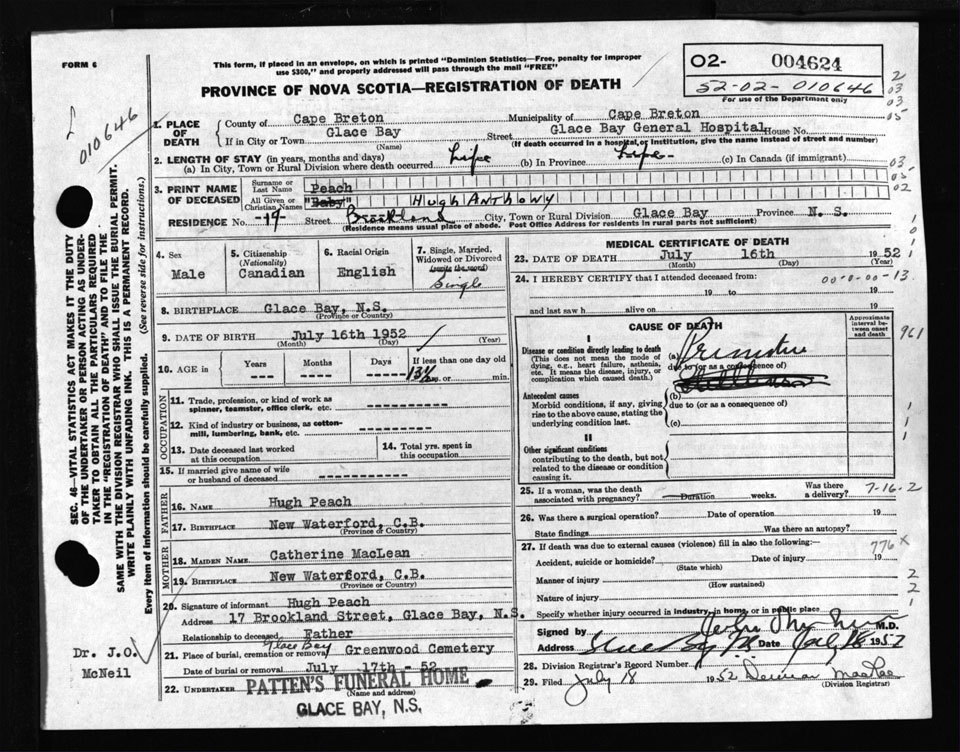 FORM 6
This form, if placed in an envelope, on which is printed "Dominion Statistics—Free, penalty for improper
use $300," and properly addressed will pass through the mail "FREE"
PROVINCE OF NOVA SCOTIA—REGISTRATION OF DEATH
O2- 004624
52-02-010646
For use of the Department only
2
03
03
05
010646
1. PLACE OF DEATH
County of Cape Breton Municipality of Cape Breton
If in City or Town Glace Bay Street Glace Bay General Hospital House No.
(Name) (If death occurred in a hospital or institution, give the name instead of street and number)
2. LENGTH OF STAY (in years, months and days)
(a) In City, Town or Rural Division where death occurred Life (b) In Province Life- (c) In Canada (if immigrant)
03
05
02
3. PRINT NAME OF DECEASED
Surname or Last Name Peach
All Given or Christian Names "Baby" HUGH ANTHONY
RESIDENCE No. -19- Street Brookland City, Town or Rural Division Glace Bay Province N. S.
(Residence means usual place of abode. Post Office Address for residents in rural parts not sufficient)
4. Sex
Male
5. Citizenship
(Nationality)
Canadian
6. Racial Origin
English
7. Single, Married,
Widowed or Divorced
(write the word)
Single
8. BIRTHPLACE Glace Bay, N.S.
(Province or Country)
9. DATE OF BIRTH July 16th 1952
(Month) (Day) (Year)
10. AGE in Years Months Days If less than one day old
--- --- --- 13 1/4 hrs. or min.
OCCUPATION
11. Trade, profession, or kind of work as
spinner, teamster, office clerk, etc. ----------
12. Kind of industry or business, as cotton-
mill, lumbering, bank, etc. ---------
13. Date deceased last worked
at this occupation
14. Total yrs. spent in
this occupation
15. If married give name of wife
or husband of deceased ----------
FATHER
16. NAME Hugh Peach
17. BIRTHPLACE New Waterford, C.B.
(Province or Country)
MOTHER
18. MAIDEN NAME Catherine MacLean
19. BIRTHPLACE New Waterford, C.B.
(Province or Country)
20. Signature of informant Hugh Peach
Address 17 Brookland Street, Glace Bay, N.S.
Relationship to deceased Father
21. Place of burial, cremation or removal Glace Bay Greenwood Cemetery
Date of burial or removal July 17th - 52
22. UNDERTAKER PATTEN'S FUNERAL HOME
(Name and address)
GLACE BAY, N.S.
Dr. J.O.
McNeil
MEDICAL CERTIFICATE OF DEATH
23. DATE OF DEATH July 16th 1952
(Month) (Day) (Year)
24. I HEREBY CERTIFY that I attended deceased from: 00-0-00-13
19 to 19
and last saw h alive on 19
CAUSE OF DEATH
Approximate
interval be-
tween onset
and death
I
Disease or condition directly leading to death
(This does not mean the mode of
dying, e.g., heart failure, asthenia,
etc. It means the disease, injury, or
complication which caused death.)
(a) Premature
due to (or as a consequence of)
(b)
Antecedent causes
Morbid conditions, if any, giving
rise to the above cause, stating the
underlying condition last.
due to (or as a consequence of)
(c)
II
Other significant conditions
contributing to the death, but not
related to the disease or condition
causing it.
961
25. If a woman, was the death
associated with pregnancy? Duration weeks.
Was there
a delivery?
7-16-2
26. Was there a surgical operation? Date of operation 19
State findings Was there an autopsy?
27. If death was due to external causes (violence) fill in also the following:—
776 x
Accident, suicide or homicide? Date of injury 19
(State which)
Manner of injury
(How sustained)
Nature of injury
Specify whether injury occurred in industry, in home, or in public place
Signed by M.D.
Address Glace Bay Date July 18 1952
28. Division Registrar's Record Number
29. Filed July 18 1952
(Division Registrar)
SEC. 46—VITAL STATISTICS ACT MAKES IT THE DUTY
OF THE UNDERTAKER OR PERSON ACTING AS UNDER-
TAKER TO OBTAIN ALL THE PARTICULARS REQUIRED
IN THE "REGISTRATION OF DEATH" AND TO FILE THE
SAME WITH THE DIVISION REGISTRAR WHO SHALL ISSUE THE BURIAL PERMIT.
WRITE PLAINLY WITH UNFADING INK. THIS IS A PERMANENT RECORD.
Every item of information should be carefully supplied. (See reverse side for instructions.)